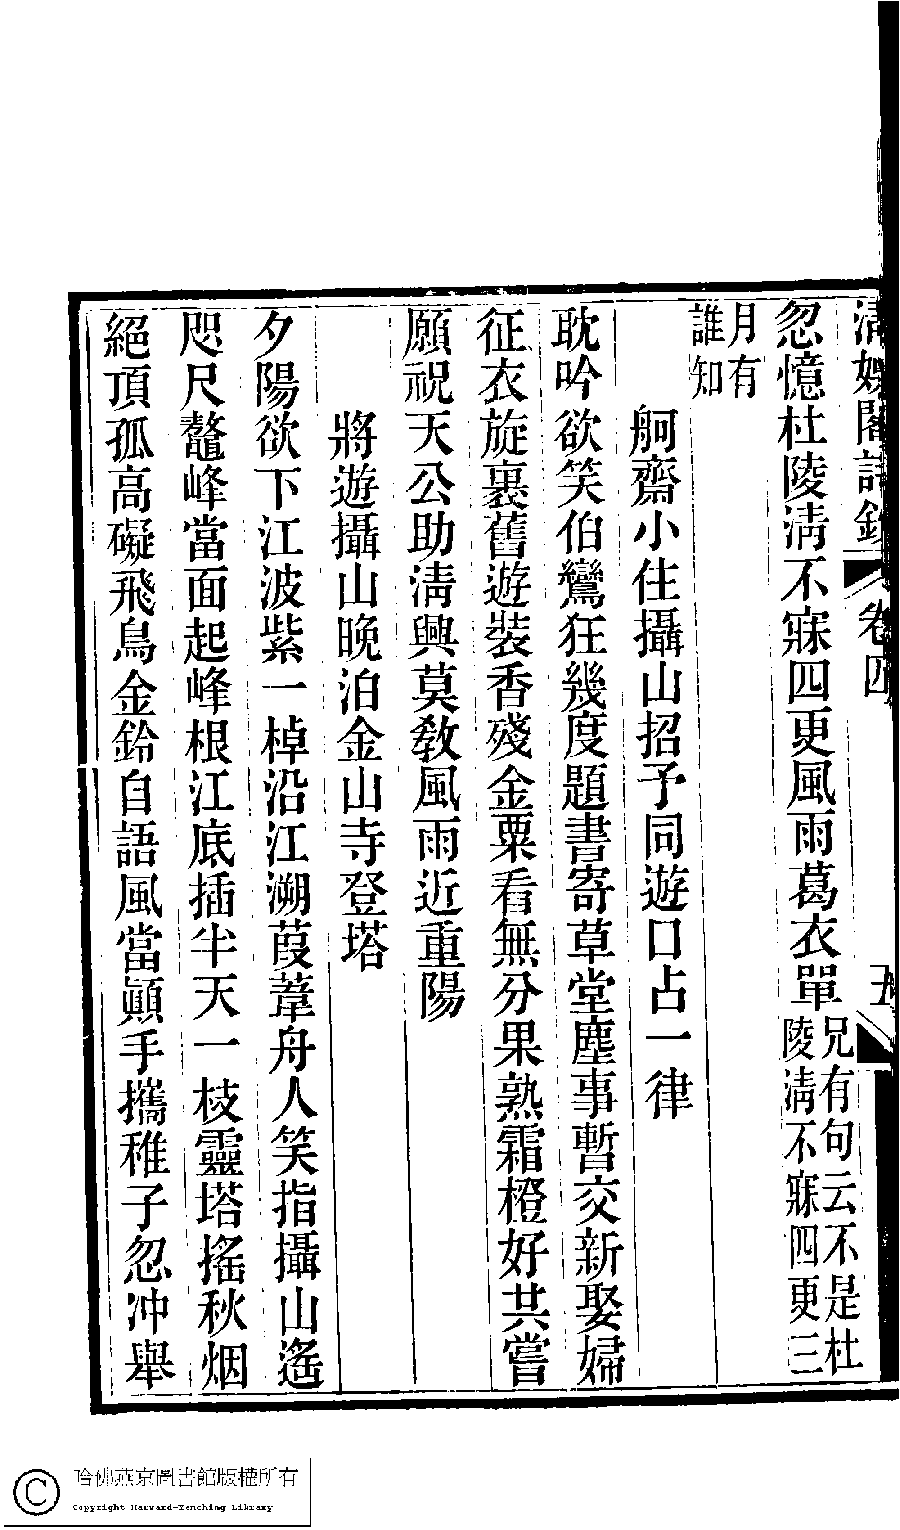 清娛閣詩鈔 卷四 五
忽憶杜陵淸不寐四更風雨葛衣單 兄有句云不是杜
陵淸不寐四更三
月有
誰知
舸齋小住攝山招予同遊口占一律
耽吟欲笑伯鸞狂幾度題書寄草堂塵事暫交新娶婦
征衣旋裹舊遊裝香殘金粟看無分果熟霜橙好共嘗
願祝天公助淸興莫敎風雨近重陽
將遊攝山晚泊金山寺登塔
夕陽欲下江波紫一棹沿江溯葭葦舟人笑指攝山遙
咫尺鼇峰當面起峰根江底插半天一枝靈塔搖秋烟
絕頂孤高礙飛鳥金鈴自語風當顚手攜稚子忽冲舉
哈佛燕京圖書館版權所有
Copyright Harvard-Yenching Library